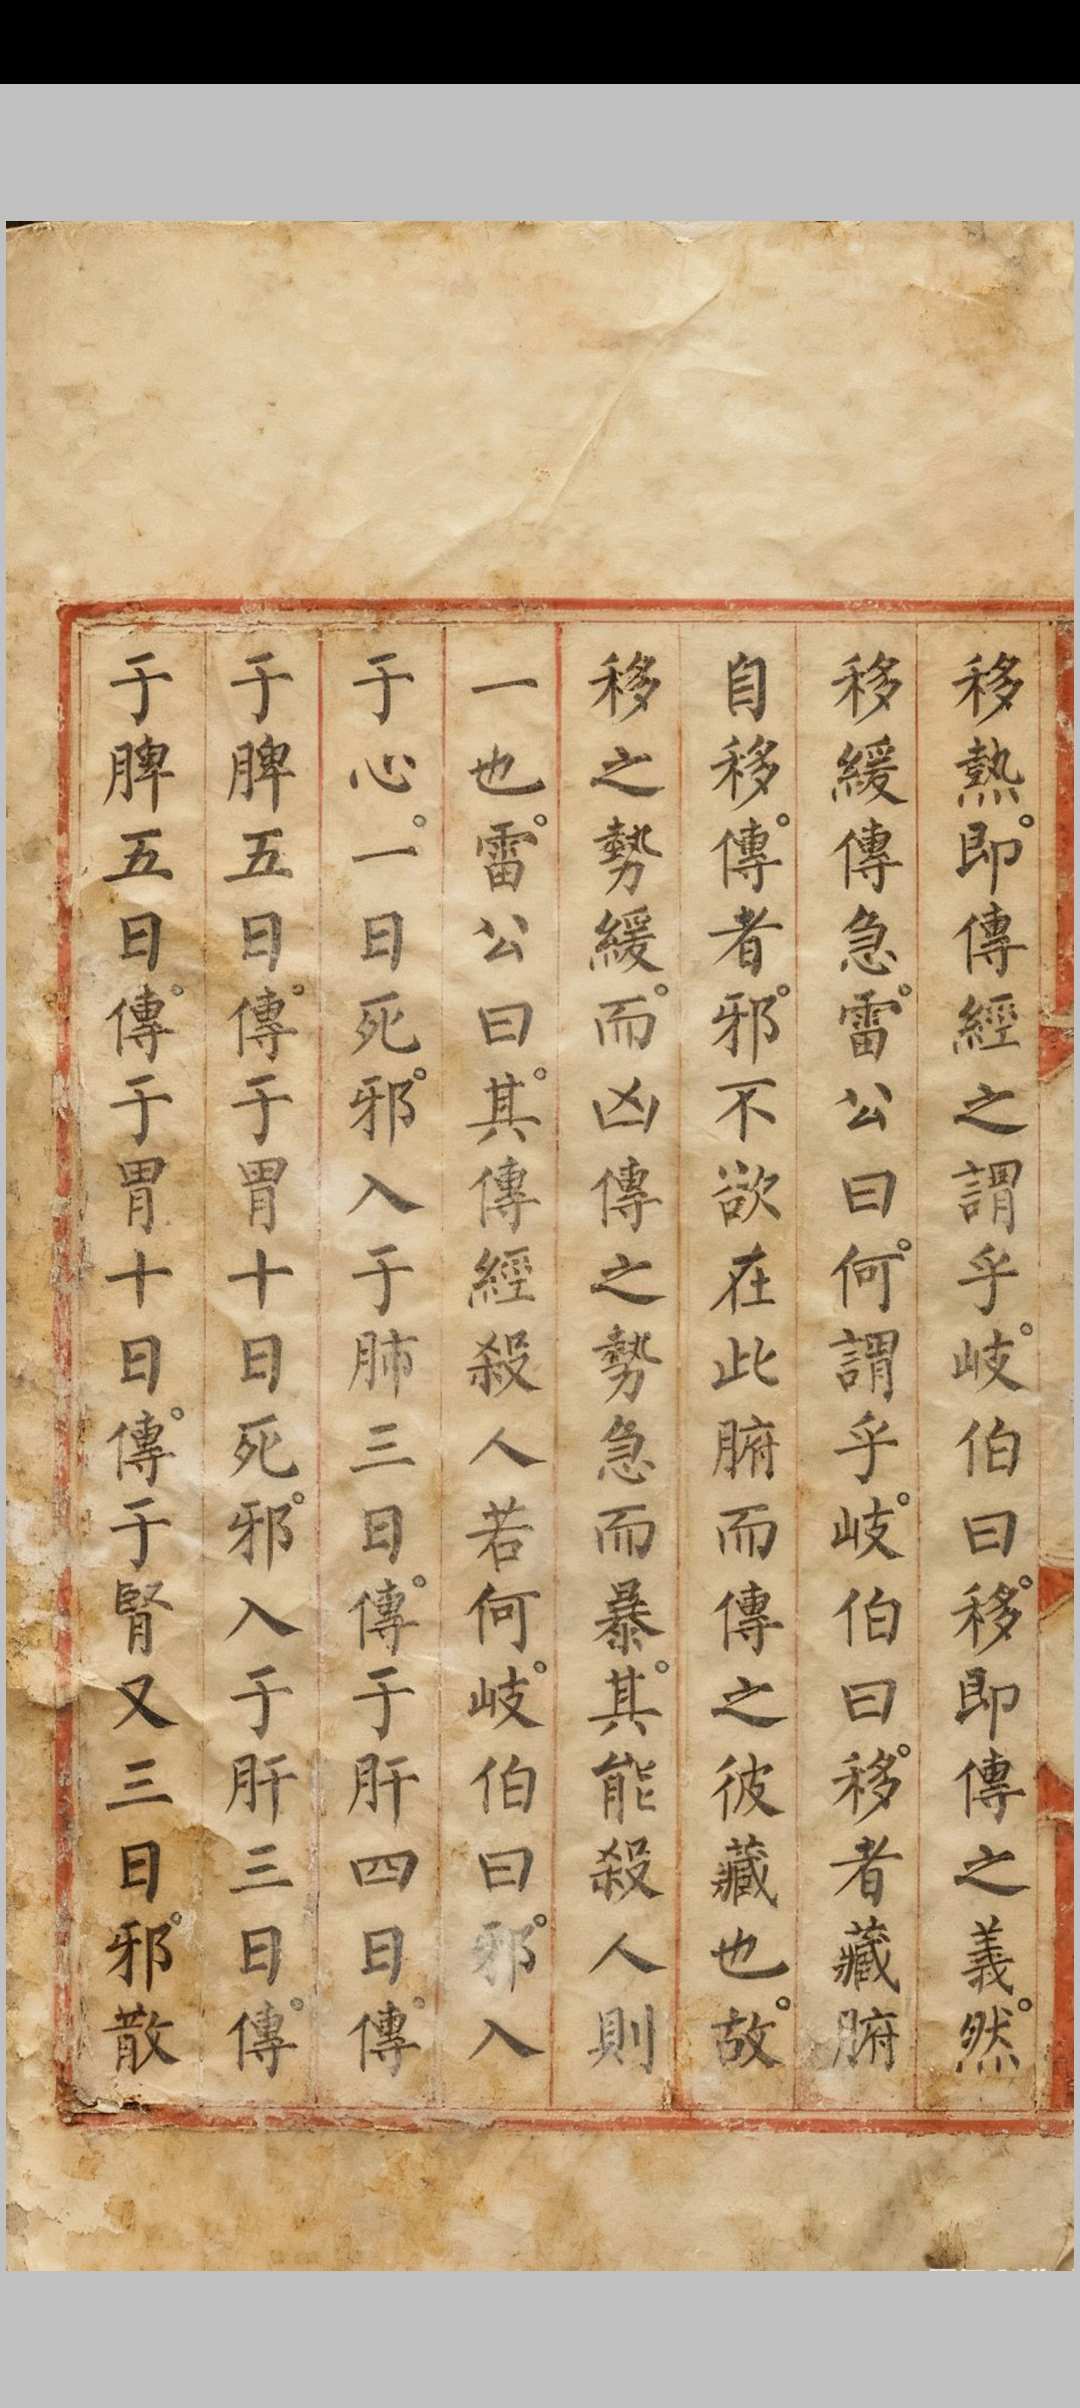 移熱。即傳經之謂乎。岐伯曰。移即傳之義。然
移緩傳急。雷公曰。何謂乎。岐伯曰。移者藏腑
自移。傳者。邪不欲在此腑而傳之彼藏也。故
移之勢緩。而凶傳之勢急而暴。其能殺人則
一也。雷公曰。其傳經殺人若何。岐伯曰。邪入
于心。一日死。邪入于肺三日。傳于肝四日。傳
于脾五日。傳于胃十日死。邪入于肝三日。傳
于脾五日。傳于胃十日。傳于腎又三日。邪散